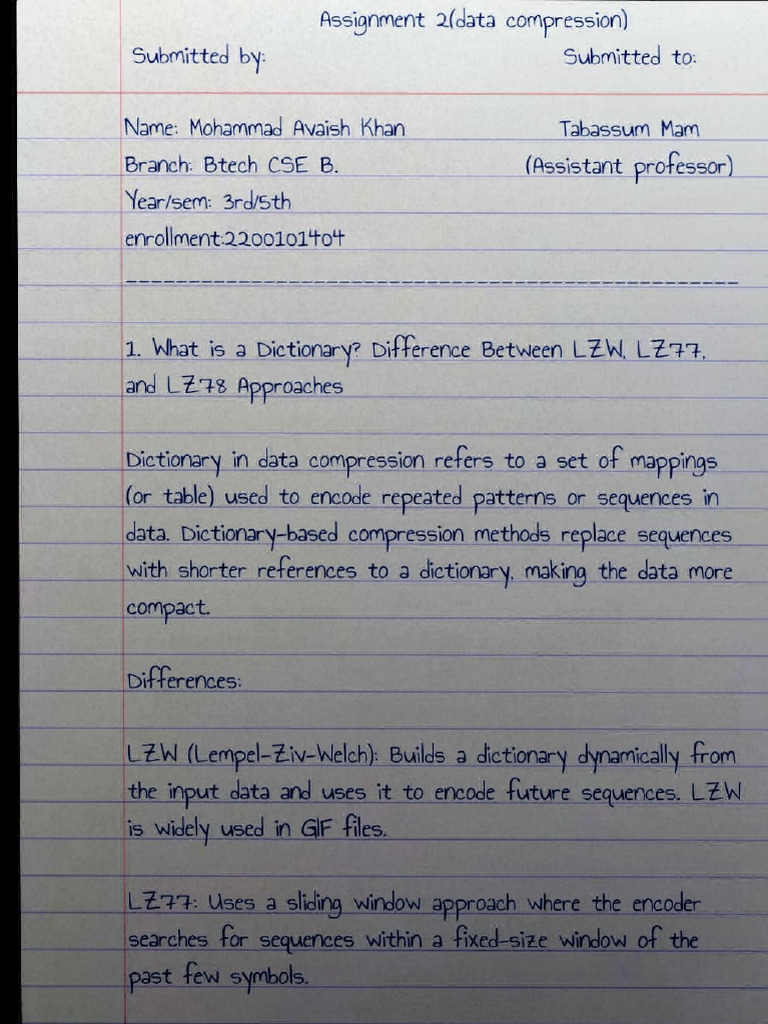 Assignment 2(data compression)
Submitted by: Submitted to:
Name: Mohammad Avaish Khan Tabassum Mam
Branch: Btech CSE B. (Assistant professor)
Year/sem: 3rd/5th
enrollment:2200101404
--------------------------------------------------
1. What is a Dictionary? Difference Between LZW, LZ77,
and LZ78 Approaches
Dictionary in data compression refers to a set of mappings
(or table) used to encode repeated patterns or sequences in
data. Dictionary-based compression methods replace sequences
with shorter references to a dictionary, making the data more
compact.
Differences:
LZW (Lempel-Ziv-Welch): Builds a dictionary dynamically from
the input data and uses it to encode future sequences. LZW
is widely used in GIF files.
LZ77: Uses a sliding window approach where the encoder
searches for sequences within a fixed-size window of the
past few symbols.